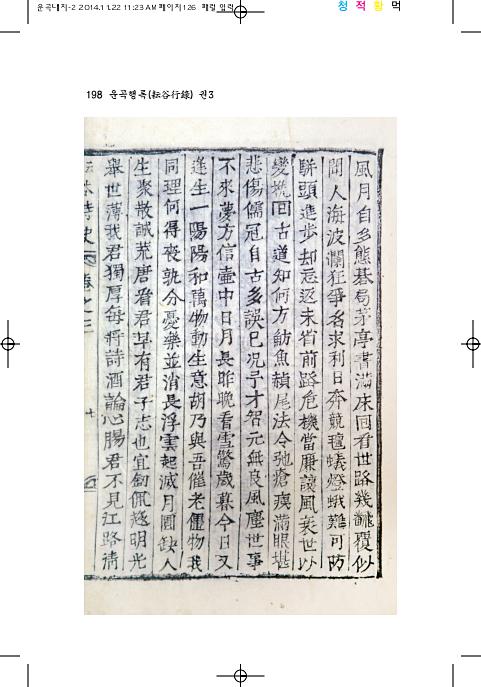 운곡내지-2 2014.11.22 11:23 AM 페이지126
청 적 황 먹
198 운곡행록(耘谷行錄) 권3
風月自多態碁局茅亭書滿床回看世路幾飜覆似
間人海波瀾狂爭名求利日奔競氈蟻燈蛾難可防
騈頭進步却忘返未省前路危機當廉讓風衰世以
變撓回古道知何方魴魚赬尾法令弛瘡瘼滿眼堪
悲傷儒冠自古多誤已况予才智元無良風塵世事
不來夢方信壷中日月長昨晚看雪驚歲暮今日又
逢生一陽陽和萬物動生意胡乃與吾催老僵物我
同理何得喪孰分憂樂並消長浮雲起滅月圓缺人
生聚散誠荒唐眷君早有君子志也宜劒佩趍明光
舉世薄我君獨厚每將詩酒論心腸君不見江路淸
詩史 卷之三 十